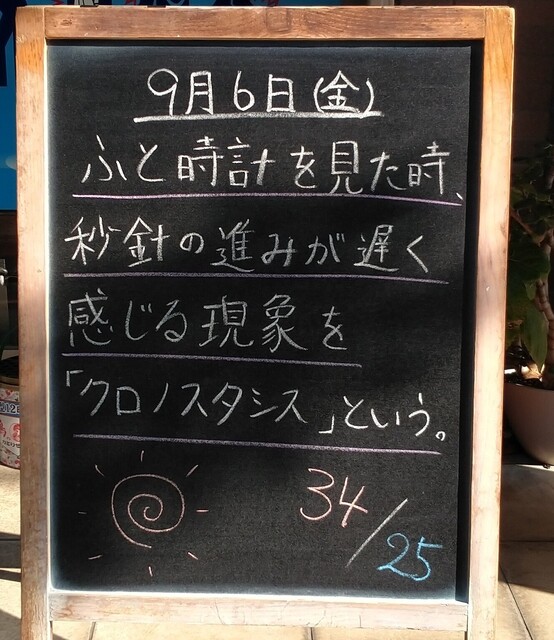 9月6日(金)
ふと時計を見た時、
秒針の進みが遅く
感じる現象を
「クロノスタシス」という。
34/25